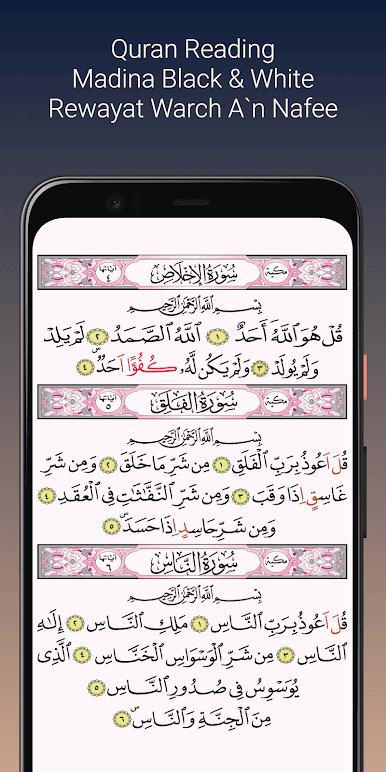 Quran Reading
Madina Black & White
Rewayat Warch A`n Nafee
مكية سُورَةُ الإِخْلَاصِ آياتها ٤
بِسْمِ اللَّهِ الرَّحْمَٰنِ الرَّحِيمِ
قُلْ هُوَ ٱللَّهُ أَحَدٌ ١ ٱللَّهُ ٱلصَّمَدُ ٢ لَمْ يَلِدْ
وَلَمْ يُولَدْ ٣ وَلَمْ يَكُن لَّهُۥ كُفُؤًا اَحَدٌ ٤
مكية سُورَةُ الفَلَقِ آياتها ٥
بِسْمِ اللَّهِ الرَّحْمَٰنِ الرَّحِيمِ
قُلَ اَعُوذُ بِرَبِّ ٱلْفَلَقِ ١ مِن شَرِّ مَا خَلَقَ ٢ وَمِن شَرِّ
غَاسِقٍ اِذَا وَقَبَ ٣ وَمِن شَرِّ ٱلنَّفَّٰثَٰتِ فِي ٱلْعُقَدِ ٤
وَمِن شَرِّ حَاسِدٍ اِذَا حَسَدَ ٥
مكية سُورَةُ النَّاسِ آياتها ٦
بِسْمِ اللَّهِ الرَّحْمَٰنِ الرَّحِيمِ
قُلَ اَعُوذُ بِرَبِّ ٱلنَّاسِ ١ مَلِكِ ٱلنَّاسِ ٢ إِلَٰهِ
ٱلنَّاسِ ٣ مِن شَرِّ ٱلْوَسْوَاسِ ٱلْخَنَّاسِ ٤ ٱلَّذِي
يُوَسْوِسُ فِي صُدُورِ ٱلنَّاسِ ٥
مِنَ ٱلْجِنَّةِ وَٱلنَّاسِ ٦